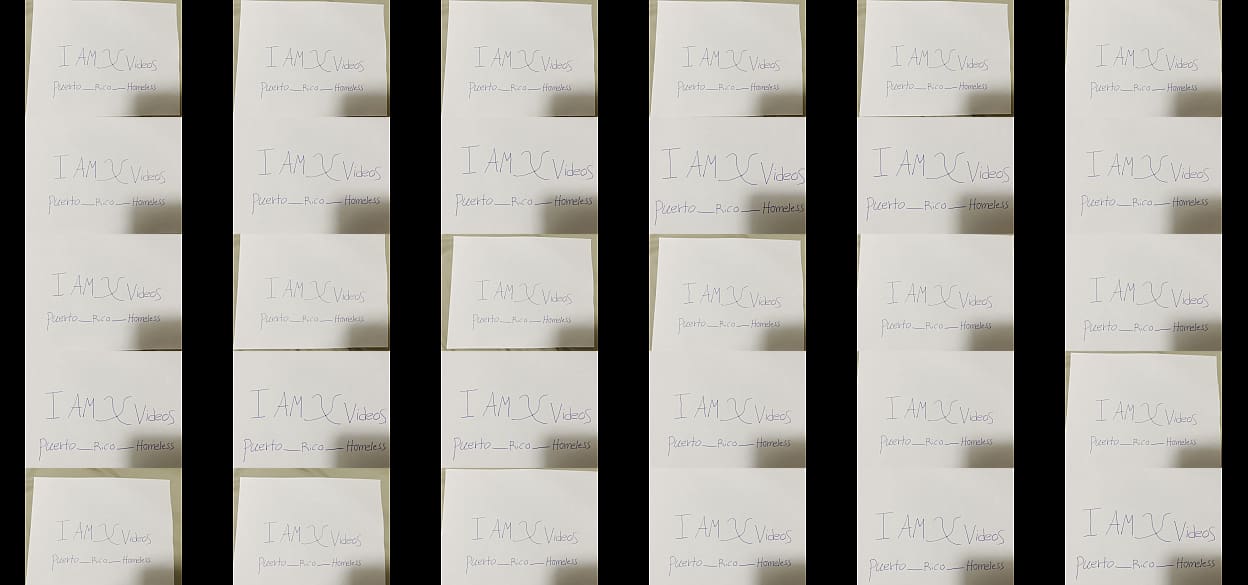 I AM X Videos
Puerto__Rico__Homeless
I AM X Videos
Puerto__Rico__Homeless
I AM X Videos
Puerto__Rico__Homeless
I AM X Videos
Puerto__Rico__Homeless
I AM X Videos
Puerto__Rico__Homeless
I AM X Videos
Puerto__Rico__Homeless
I AM X Videos
Puerto__Rico__Homeless
I AM X Videos
Puerto__Rico__Homeless
I AM X Videos
Puerto__Rico__Homeless
I AM X Videos
Puerto__Rico__Homeless
I AM X Videos
Puerto__Rico__Homeless
I AM X Videos
Puerto__Rico__Homeless
I AM X Videos
Puerto__Rico__Homeless
I AM X Videos
Puerto__Rico__Homeless
I AM X Videos
Puerto__Rico__Homeless
I AM X Videos
Puerto__Rico__Homeless
I AM X Videos
Puerto__Rico__Homeless
I AM X Videos
Puerto__Rico__Homeless
I AM X Videos
Puerto__Rico__Homeless
I AM X Videos
Puerto__Rico__Homeless
I AM X Videos
Puerto__Rico__Homeless
I AM X Videos
Puerto__Rico__Homeless
I AM X Videos
Puerto__Rico__Homeless
I AM X Videos
Puerto__Rico__Homeless
I AM X Videos
Puerto__Rico__Homeless
I AM X Videos
Puerto__Rico__Homeless
I AM X Videos
Puerto__Rico__Homeless
I AM X Videos
Puerto__Rico__Homeless
I AM X Videos
Puerto__Rico__Homeless
I AM X Videos
Puerto__Rico__Homeless